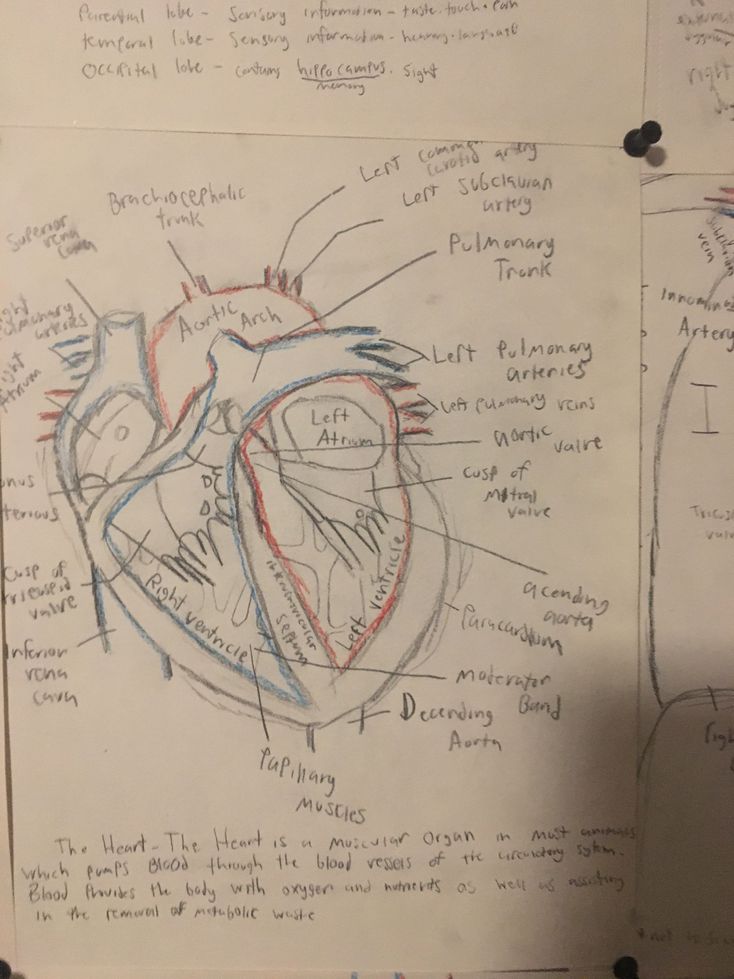 Parential lobe - Sensory information - taste. touch. Pain
temporal lobe - Sensory information - hearing. language
Occipital lobe - contains hippocampus. Sight
memory
Left common
carotid artery
Left Subclavian
artery
Brachiocephalic
trunk
Superior
vena
cava
Pulmonary
Trunk
Aortic Arch
ight
ulmonary
arteries
Left Pulmonary
arteries
ight
Atrium
Left Pulmonary veins
Left
Atrium
aortic
valve
Cusp of
mitral
valve
onus
terious
Cusp of
tricuspid
valve
acending
aorta
Right Ventricle
interventricular
septum
Left Ventricle
Paracardium
Inferior
vena
cava
Moderator
Band
Decending
Aorta
Papillary
Muscles
The Heart - The Heart is a Muscular Organ in most animals
which pumps Blood through the blood vessels of the circulatory sytem.
Blood Provides the body with oxygen and nutrients as well as assisting
in the removal of metabolic waste
external
right
Subclavian
vein
Innomina
Artery
valv